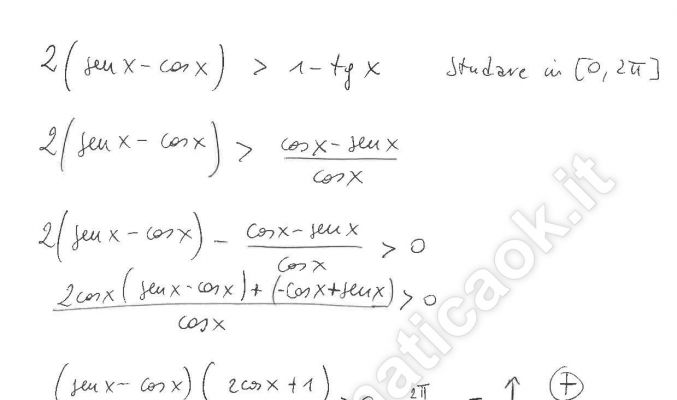 2(sen x - cos x) > 1 - tg x Studare in [0, 2π]
2(sen x - cos x) > (cos x - sen x)/cos x
2(sen x - cos x) - (cos x - sen x)/cos x > 0
(2cos x (sen x - cos x) + (-cos x + sen x))/cos x > 0
(sen x - cos x)(2cos x + 1) > 0 2π - ↑ +
maticaok.it